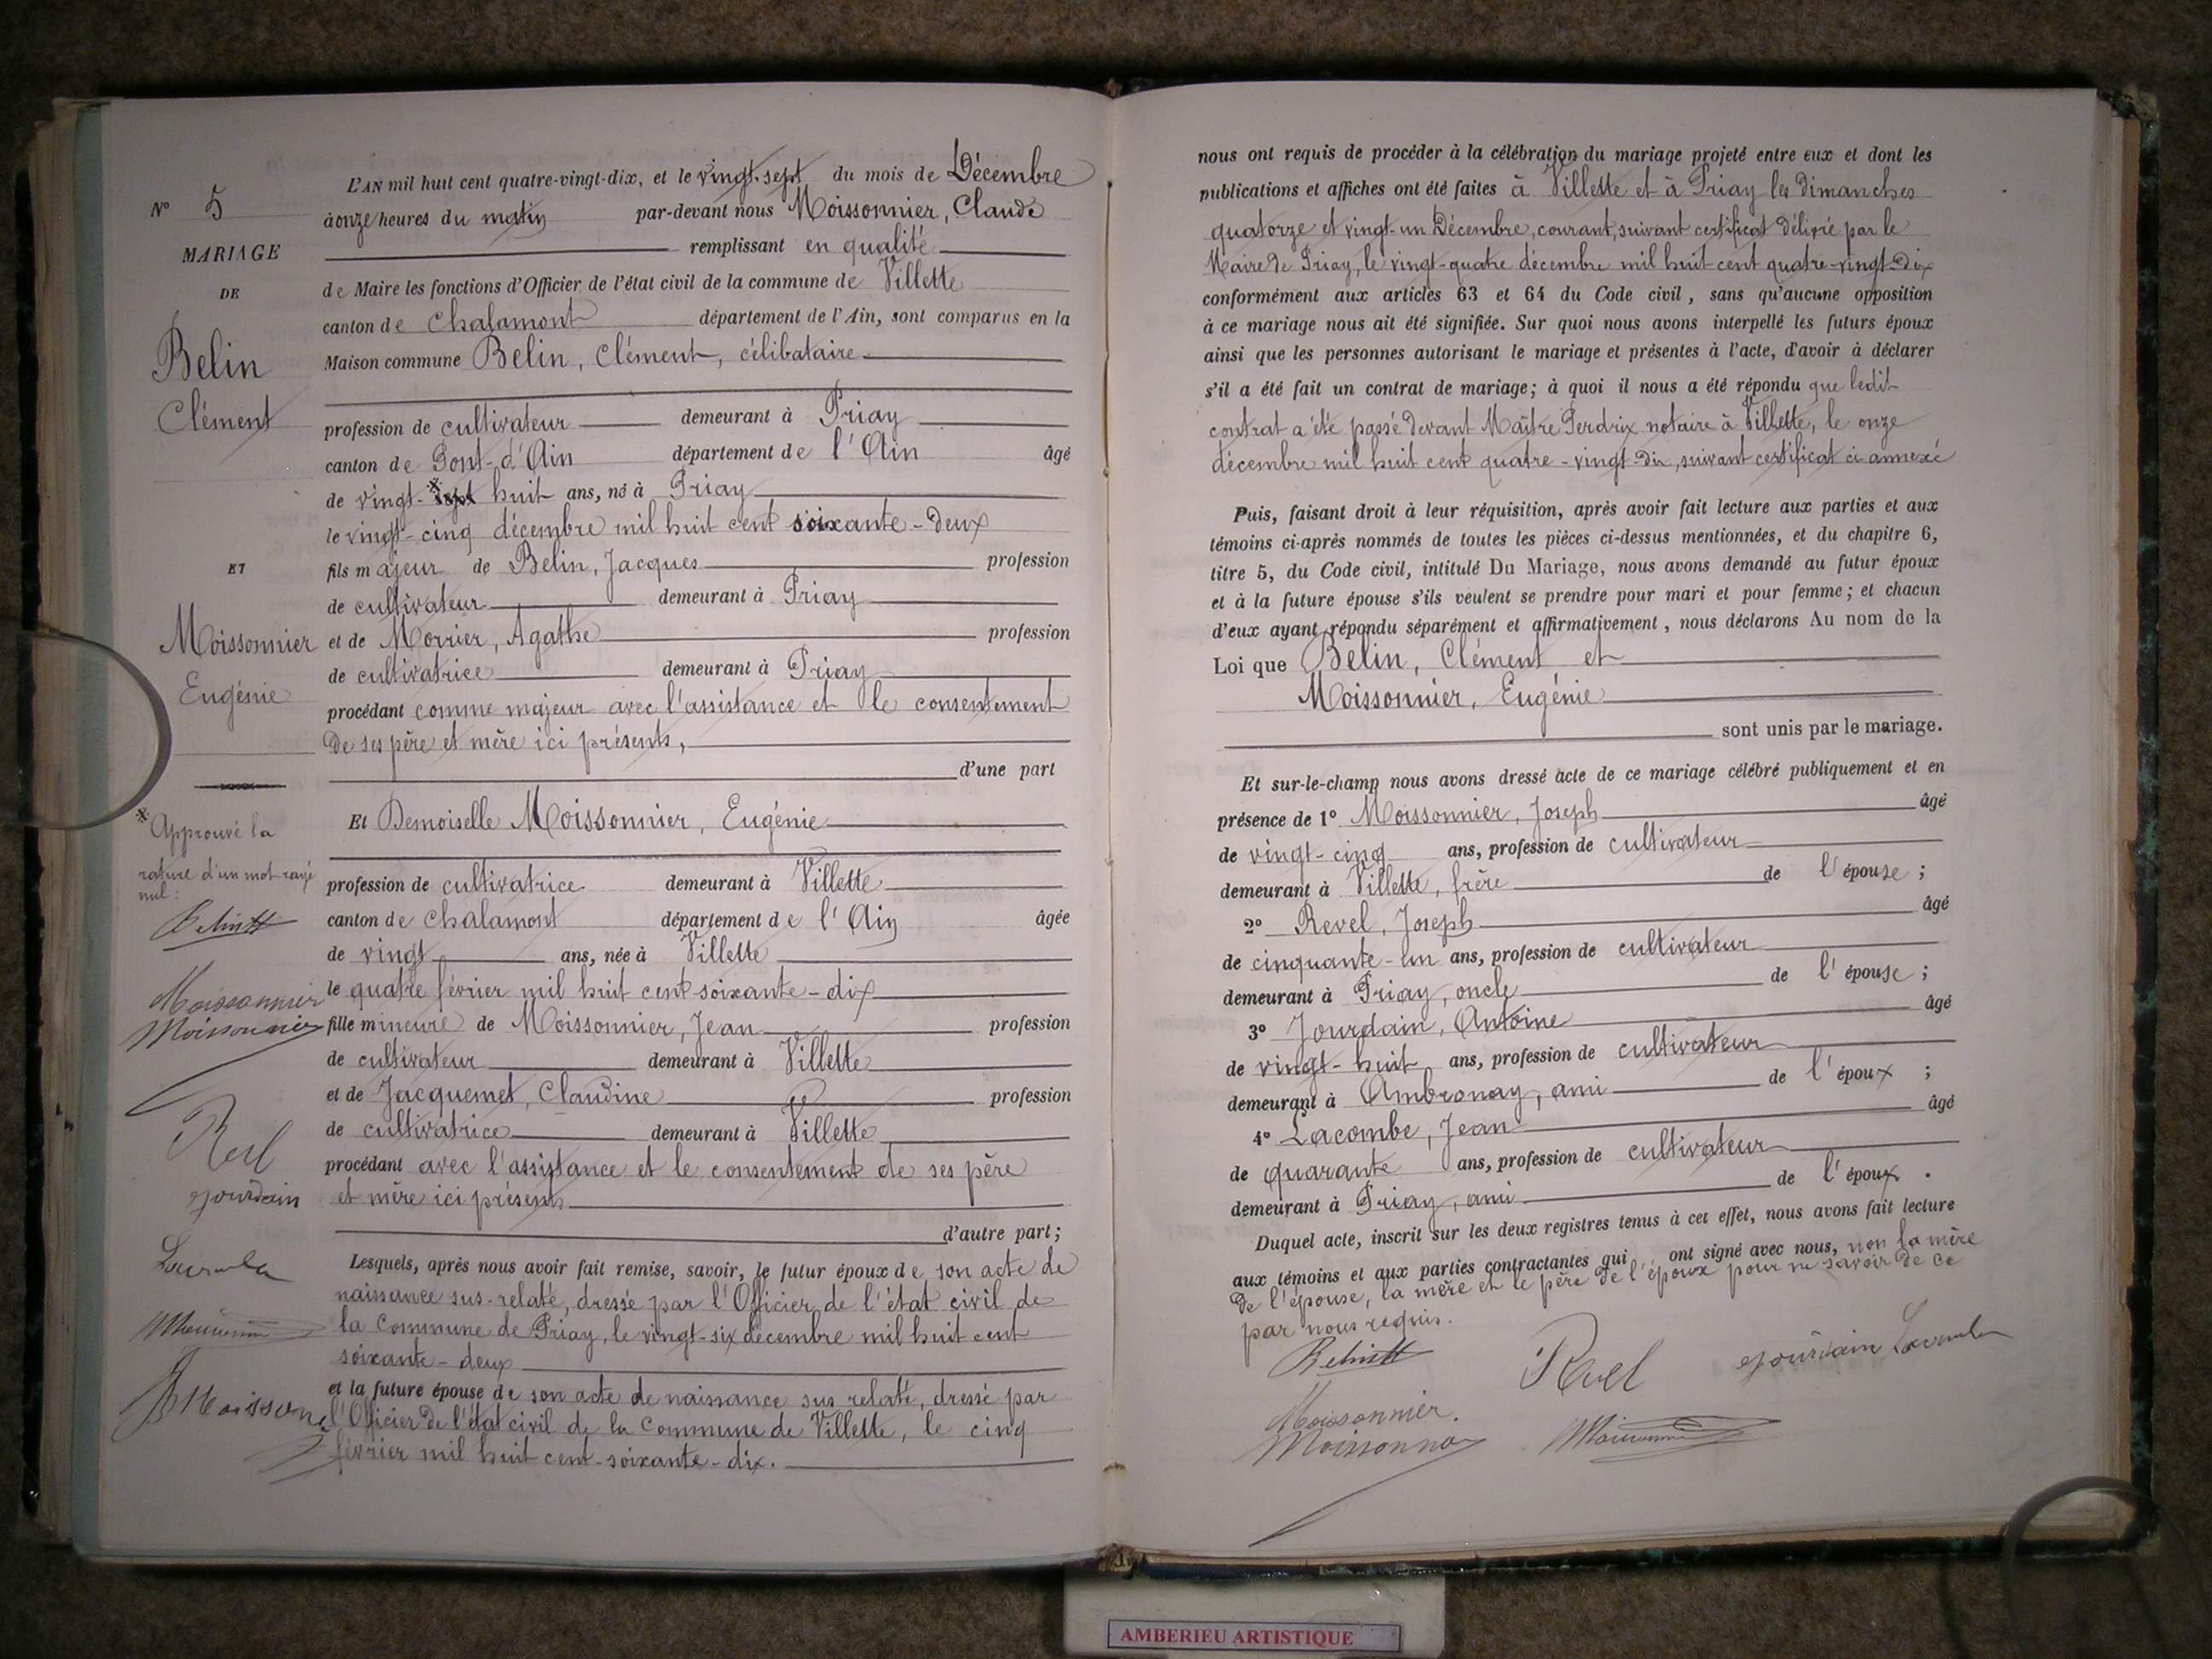 N° 5
MARIAGE
DE
Belin
Clément
ET
Moissonnier
Eugénie
* Approuvé la
rature d'un mot rayé
nul :
Moissonnier
Moissonnier
Jourdain
L'AN mil huit cent quatre-vingt-dix, et le vingt-sept du mois de Décembre
à onze heures du matin par-devant nous Moissonnier, Claude
remplissant en qualité
de Maire les fonctions d'Officier de l'état civil de la commune de Villette
canton de Chalamont département de l'Ain, sont comparus en la
Maison commune Belin, Clément, célibataire
profession de cultivateur demeurant à Priay
canton de Pont-d'Ain département de l'Ain âgé
de vingt-* sept huit ans, né à Priay
le vingt-cinq décembre mil huit cent soixante-deux
fils majeur de Belin, Jacques profession
de cultivateur demeurant à Priay
et de Morrier, Agathe profession
de cultivatrice demeurant à Priay
procédant comme majeur avec l'assistance et le consentement
de ses père et mère ici présents,
d'une part
Et Demoiselle Moissonnier, Eugénie
profession de cultivatrice demeurant à Villette
canton de Chalamont département de l'Ain âgée
de vingt ans, née à Villette
le quatre février mil huit cent soixante-dix
fille mineure de Moissonnier, Jean profession
de cultivateur demeurant à Villette
et de Jacquemet, Claudine profession
de cultivatrice demeurant à Villette
procédant avec l'assistance et le consentement de ses père
et mère ici présents
d'autre part;
Lesquels, après nous avoir fait remise, savoir, le futur époux de son acte de
naissance sus-relaté, dressé par l'Officier de l'état civil de
la Commune de Priay, le vingt-six décembre mil huit cent
soixante-deux
et la future épouse de son acte de naissance sus relaté, dressé par
l'Officier de l'état civil de la Commune de Villette, le cinq
février mil huit cent-soixante-dix.
nous ont requis de procéder à la célébration du mariage projeté entre eux et dont les
publications et affiches ont été faites à Villette et à Priay les dimanches
quatorze et vingt-un Décembre, courant, suivant certificat délivré par le
Maire de Priay, le vingt-quatre décembre mil huit cent quatre-vingt-dix
conformément aux articles 63 et 64 du Code civil, sans qu'aucune opposition
à ce mariage nous ait été signifiée. Sur quoi nous avons interpellé les futurs époux
ainsi que les personnes autorisant le mariage et présentes à l'acte, d'avoir à déclarer
s'il a été fait un contrat de mariage; à quoi il nous a été répondu que ledit
contrat a été passé devant Maître Perdrix notaire à Villette, le onze
décembre mil huit cent quatre-vingt-dix, suivant certificat ci-annexé
Puis, faisant droit à leur réquisition, après avoir fait lecture aux parties et aux
témoins ci-après nommés de toutes les pièces ci-dessus mentionnées, et du chapitre 6,
titre 5, du Code civil, intitulé Du Mariage, nous avons demandé au futur époux
et à la future épouse s'ils veulent se prendre pour mari et pour femme; et chacun
d'eux ayant répondu séparément et affirmativement, nous déclarons Au nom de la
Loi que Belin, Clément et
Moissonnier, Eugénie
sont unis par le mariage.
Et sur-le-champ nous avons dressé acte de ce mariage célébré publiquement et en
présence de 1° Moissonnier, Joseph âgé
de vingt-cinq ans, profession de cultivateur
demeurant à Villette, frère de l'épouse;
2° Revel, Joseph âgé
de cinquante-un ans, profession de cultivateur
demeurant à Priay, oncle de l'épouse;
3° Jourdain, Antoine âgé
de vingt-huit ans, profession de cultivateur
demeurant à Ambronay, ami de l'époux;
4° Lacombe, Jean âgé
de quarante ans, profession de cultivateur
demeurant à Priay, ami de l'époux.
Duquel acte, inscrit sur les deux registres tenus à cet effet, nous avons fait lecture
aux témoins et aux parties contractantes qui ont signé avec nous, non la mère
de l'épouse, la mère et le père de l'époux pour ne savoir de ce
par nous requis.
Jourdain
Moissonnier.
AMBERIEU ARTISTIQUE